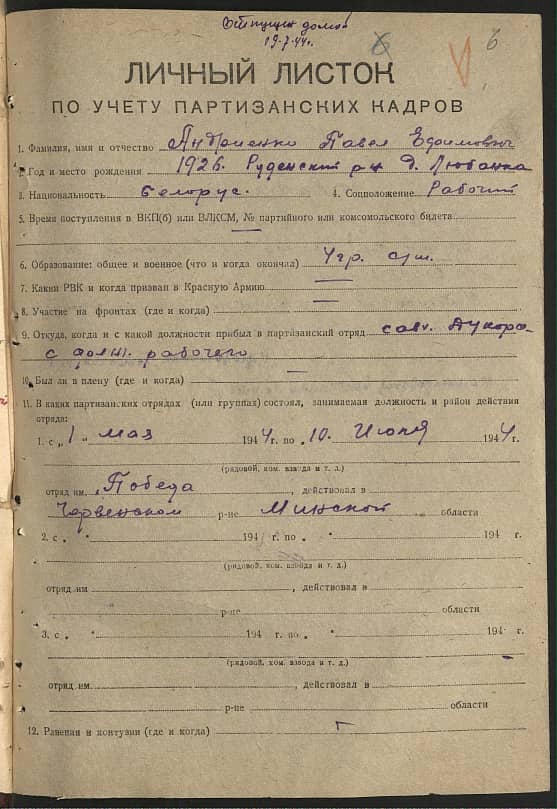 Отпущен домой
19.7.44г.
6
6
ЛИЧНЫЙ ЛИСТОК
ПО УЧЕТУ ПАРТИЗАНСКИХ КАДРОВ
1. Фамилия, имя и отчество Андриенко Павел Ефимович
2. Год и место рождения 1926. Руденский р-н д. Любанка
3. Национальность белорус. 4. Соцположение Рабочий
5. Время поступления в ВКП(б) или ВЛКСМ, № партийного или комсомольского билета
6. Образование: общее и военное (что и когда окончил) 4гр. с/ш.
7. Каким РВК и когда призван в Красную Армию
8. Участие на фронтах (где и когда)
9. Откуда, когда и с какой должности прибыл в партизанский отряд совх. Дукора
с долж. рабочего
10. Был ли в плену (где и когда)
11. В каких партизанских отрядах (или группах) состоял, занимаемая должность и район действия
отряда:
1. с „1„ мая 1944 г. по „10. Июля 1944 г.
(рядовой, ком. взвода и т. д.)
отряд им. „Победа , действовал в
Червенском р-не Минской области
2. с „ “ 194 г. по „ “ 194 г.
(рядовой, ком. взвода и т. д.)
отряд им , действовал в
р-не области
3. с „ “ 194 г. по „ “ 194 г.
(рядовой, ком. взвода и т. д.)
отряд им. , действовал в
р-не области
12. Ранения и контузии (где и когда)